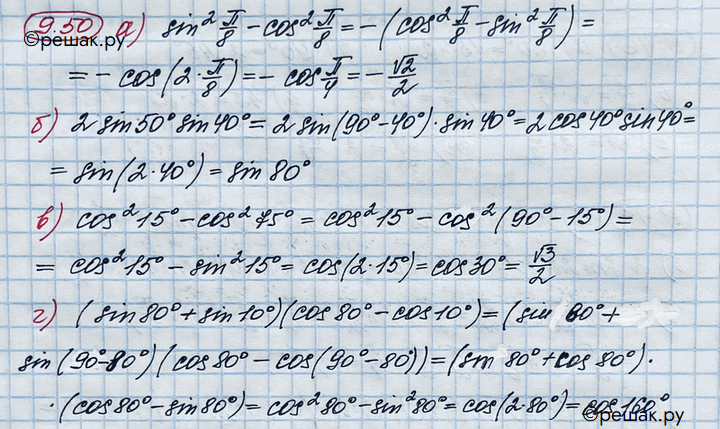 9.50 а) sin² π/8 - cos² π/8 = -(cos² π/8 - sin² π/8) =
©решак.ру
= - cos(2·π/8) = - cos π/4 = - √2/2
б) 2 sin50° sin40° = 2 sin(90°-40°)·sin40° = 2cos40°sin40° =
= sin(2·40°) = sin80°
в) cos²15° - cos²75° = cos²15° - cos²(90°-15°) =
= cos²15° - sin²15° = cos(2·15°) = cos30° = √3/2
г) (sin80° + sin10°)(cos80° - cos10°) = (sin 80° +
sin(90°-80°)(cos80° - cos(90°-80°)) = (sin 80° + cos80°)·
·(cos80° - sin80°) = cos²80° - sin²80° = cos(2·80°) = cos160°
©решак.ру